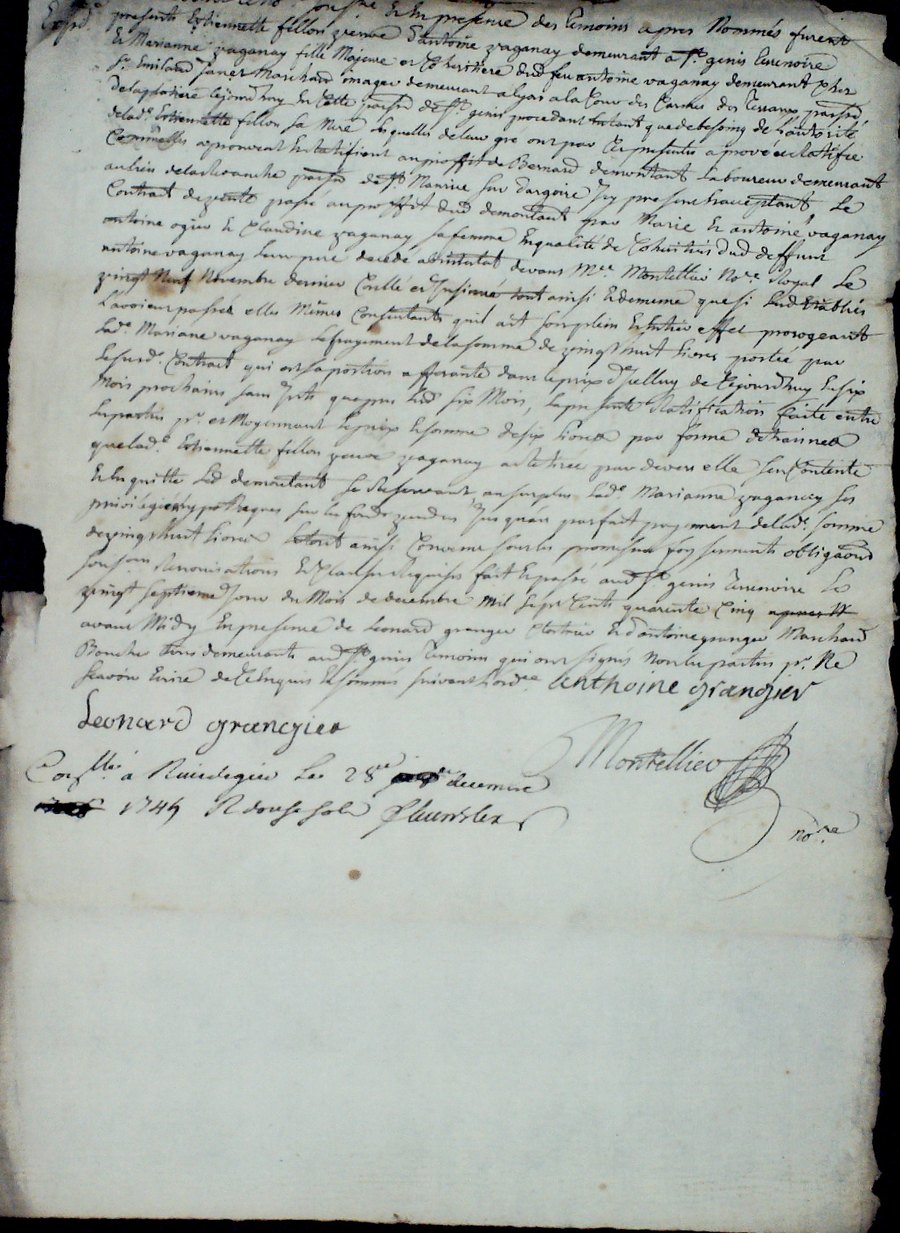 soussigné & En presence des temoins apres Nommés furent
Exped. presents Estiennette fillon veuve d'antoine vaganay demeurant a St. genis terrenoire
& Marianne vaganay fille Majeure et Coheritiere dud feu antoine vaganay demeurant chez
Sr. Emiland Janet Marchand demeurant a lyon a la Cour des Carmes des Terraux parsse
de la platiere Cejourdhuy En Cette parsse de St. genis procedant En tant que de besoing de l'autorité
de lad. Estiennette fillon sa Mere Lesquelles de leur gré ont par Ces presentes aprové & Ratifié
Comm'elles aprouvent & Ratifient au proffit de Bernard demontant Laboureur demeurant
au lieu de parsse de St Maurice sur dargoire Icy present & acceptant Le
Contrat de vente passé au proffit dud demontant par Marie & antoine vaganay
antoine ogier & Claudine vaganay sa femme En qualité de Cohéritiers dud deffunt
antoine vaganay Leur pere decedé abintestat devant Me. Montellier Nore. Royal Le
vingt Neuf Novembre dernier Conllé et Insinué tout ainsi & de meme que si
L'avoient passé elles Mêmes Consentants quil ait son plein & Entier effet prorogeant
Lad. Mariane vaganay Le payement de la somme de vingt huit livres portée par
Le susd. Contrat qui est sa portion afferante dans le prix d'Icelluy de Cejourdhuy En six
Mois prochains sans Interets que pour Lesd. six Mois, La presente Ratification faite entre
Les parties pr. et Moyennant Le prix & somme de six livres par forme detrainne
que lad. Estiennette fillon veuve vaganay a retirée par devers elle s'en Contente
& En quitte Led demontant Se Reservant au surplus Lad. Marianne vaganay ses
privilegiés hypotheques sur Les fonds vendus Jusqu'au parfait payement de lad. somme
de vingt huit livres Le tout ainsi Convenu sous les promesses foy serments obligaons
soumissons Renonciations & Clauses Requises fait & passé aud St. genis Terrenoire Le
vingt septieme Jour du Mois de decembre Mil Sept Cents quarente Cinq
avant Midy En presence de Leonard granger & d'antoine granger Marchand
Boucher tous demeurants aud St. genis temoins qui ont signés Non les parties pr. Ne
sçavoir Ecrire de ce Enquis & sommés suivant Lordce. anthoine grangier
Leonard grangier
Montellier
nore.
Conllé. a Rivedegier Le 28e decembre
1745 R douse sols fleurdelix